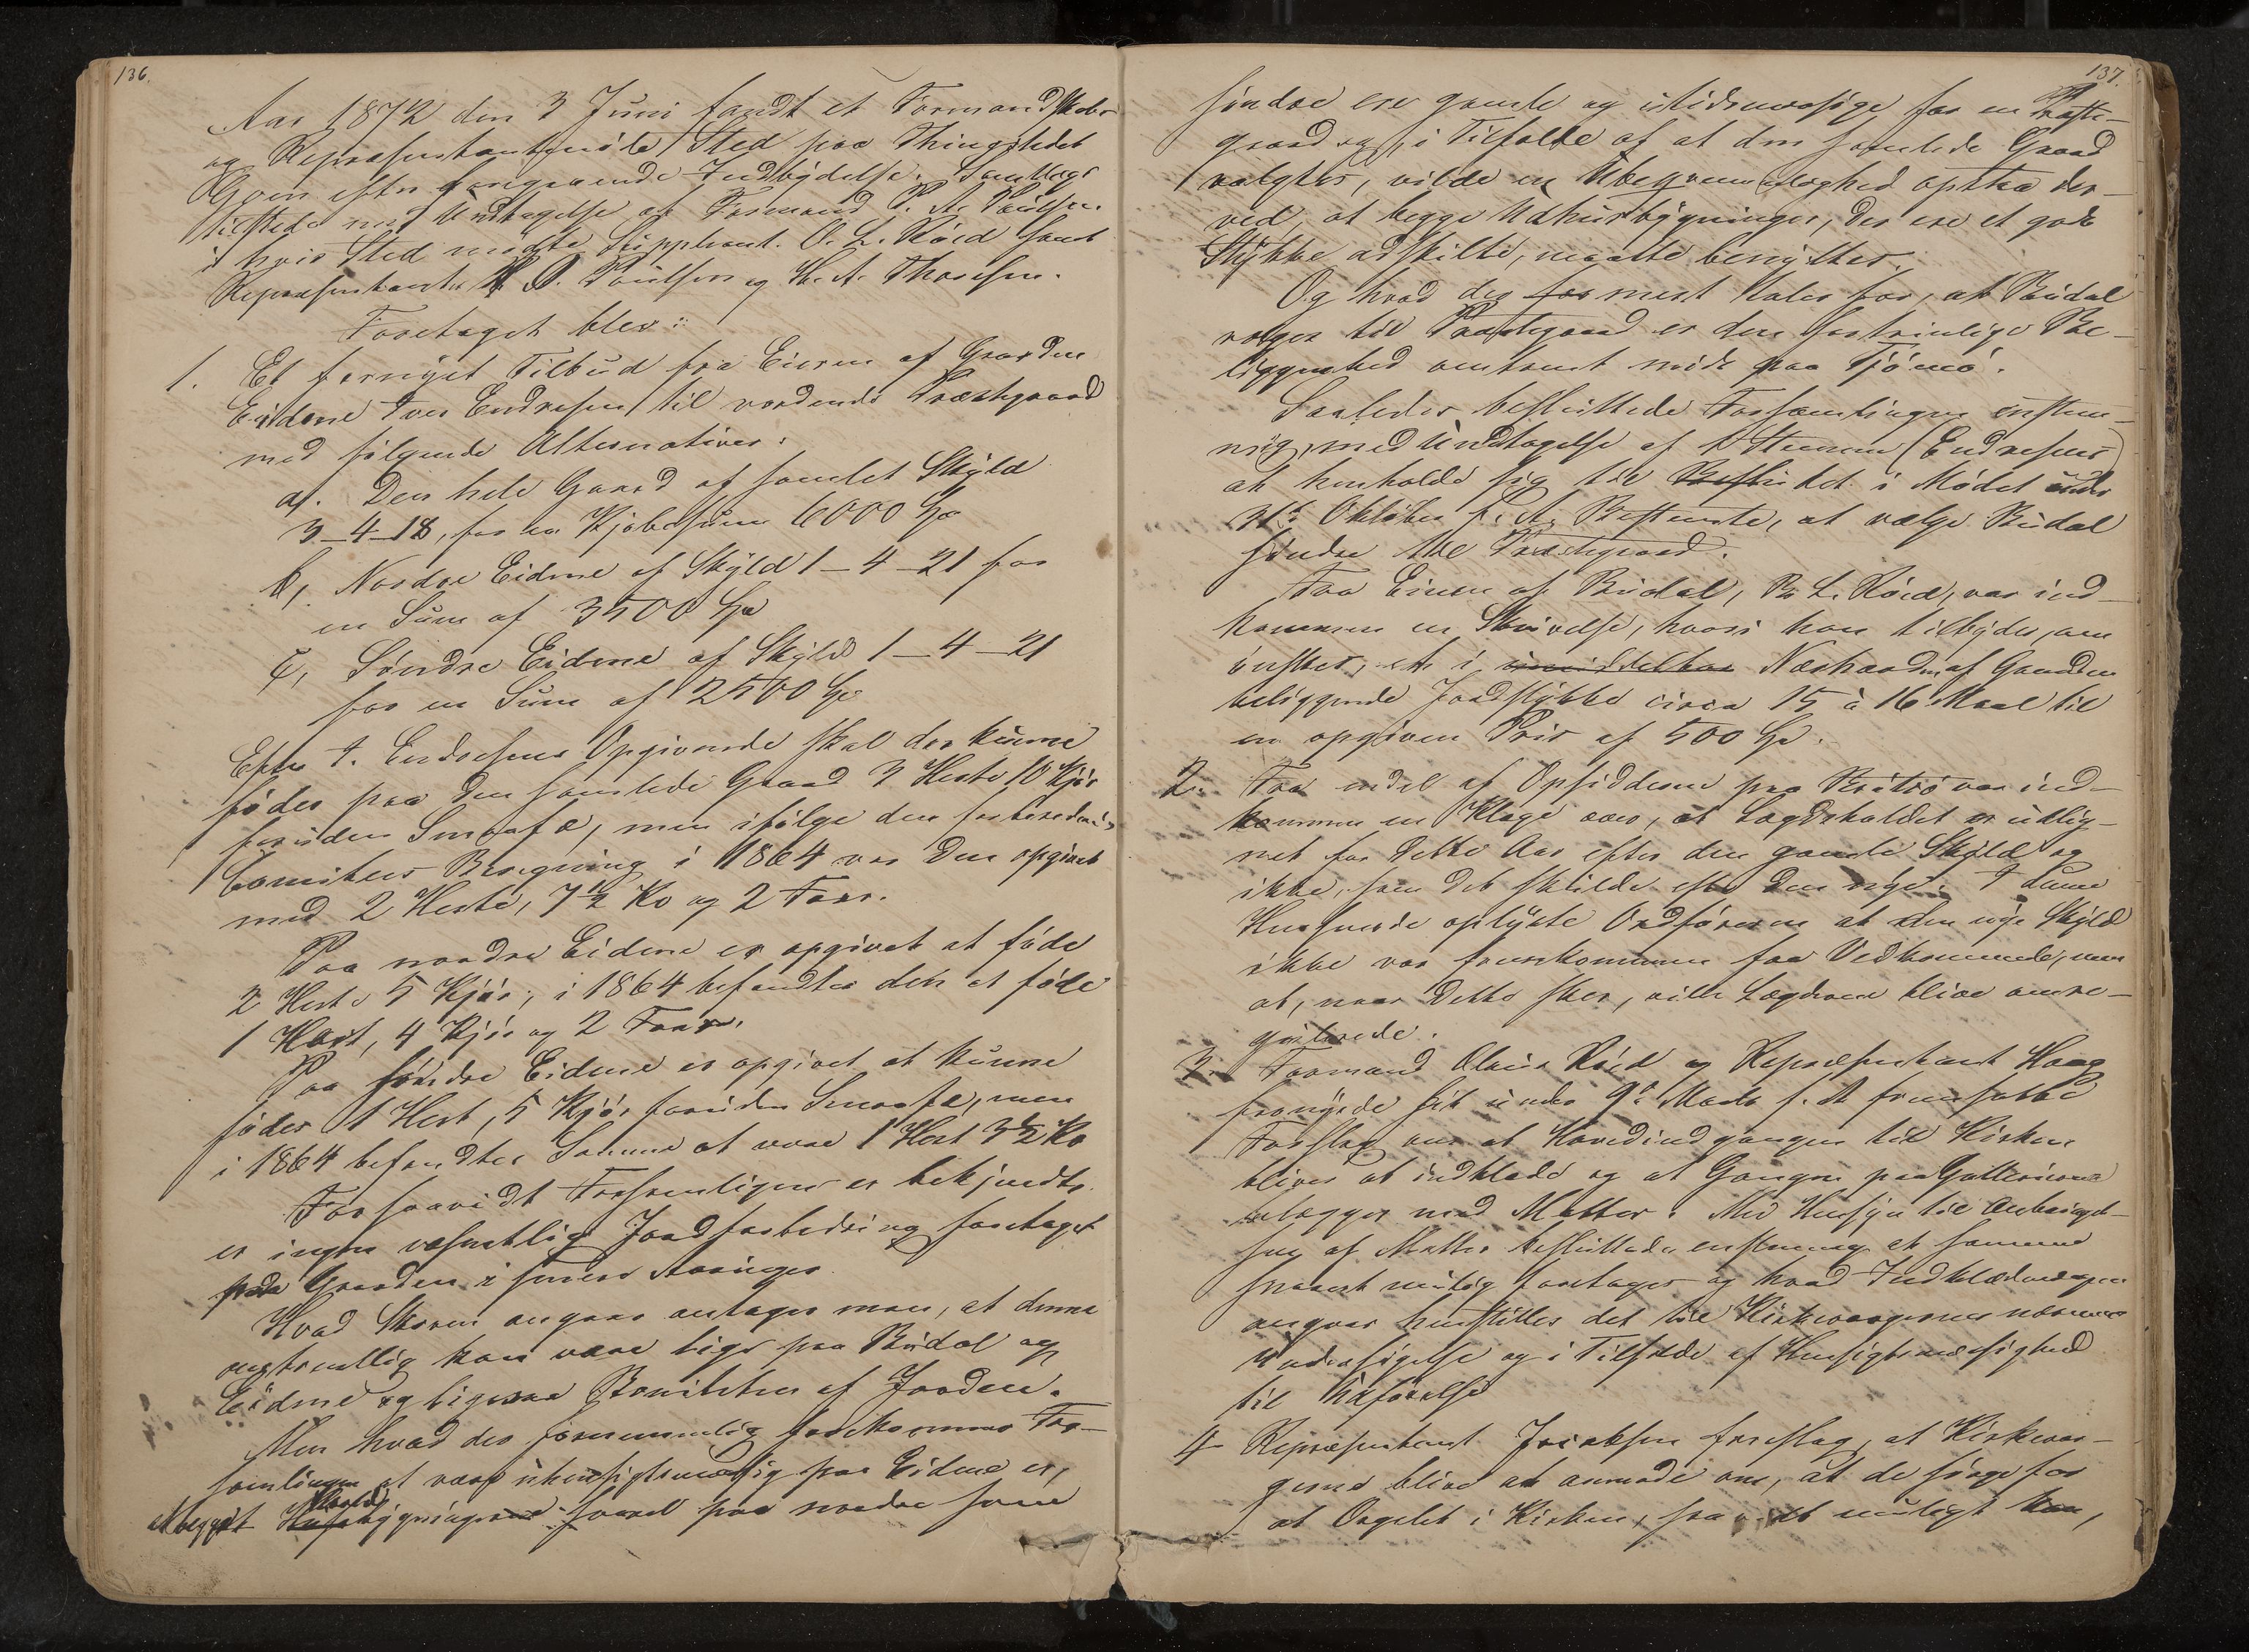 136.
Aar 1872 den 3 Juni fandt et Formandskabs
og Repræsentantmøde Sted paa Thingstedet
Gjøen efter foregaaende Indbydelse. Samtlige
tilstede med Undtagelse af Formand P. A. Paulsen
i hvis Sted mødte Suppleant O. L. Røed samt
Repræsentanterne Paulsen og H. A. Thoresen.
Foretaget blev:
1. Et fornyet Tilbud fra Eieren af Gaarden
Eidene Iver Endresen til vordende Præstegaard
med følgende Alternativer:
a. Den hele Gaard af samlet Skyld
3-4-18, for en Kjøbesum 6000 Spd
b, Nordre Eidene af Skyld 1-4-21 for
en Sum af 3500 Spd
c, Søndre Eidene af Skyld 1-4-21
for en Sum af 2500 Spd
Efter I. Endresens Opgivende skal der kunne
fødes paa den samlede Gaard 3 Heste 10 Kjør
foruden Smaafæ, men ifølge den forberedende
Comitees Beregning i 1864 var den opgivet
med 2 Heste, 7½ Ko og 2 Faar.
Paa nordre Eidene er opgivet at føde
2 Heste 5 Kjør; i 1864 befandtes den at føde
1 Hest, 4 Kjør og 2 Faar.
Paa søndre Eidene er opgivet at kunne
fødes 1 Hest, 5 Kjør foruden Smaafæ, men
i 1864 befandtes Samme at være 1 Hest 3½ Ko
Forsaavidt Forsamlingen er bekjendt
er ingen væsentlig Jordforbedring foretaget
paa Gaarden i senere Aaringer.
Hvad Skoven angaar antages man, at denne
omtrentlig kan være lige paa Budal og
Eidene og ligesaa Boniteten af Jorden.
Men hvad der fornemmelig forekommer For-
samlingen at være uhensigtsmæssig paa Eidene er,
at begge bygningerne saavel paa nordre som
137.
søndre ere gamle og utidsmæssige for en Præste-
gaard og, i Tilfælde af at den samlede Gaard
valgtes, vilde en Ubeqvemmelighed opstaa der-
ved, at begge Udhusbygninger, der ere et godt
Stykke adskilte, maatte benyttes.
Og hvad der mest taler for, at Budal
vælges til Præstegaard er den fortrinlige Be-
liggenhed omtrent midt paa Tjømø.
Saaledes besluttede Forsamlingen enstem-
mig, med Undtagelse af 1 Stemme (Endresens)
at henholde sig til i Mødet under
31te Oktober f. A. Bestemte, at vælge Budal
søndre til Præstegaard.
Fra Eieren af Budal, B. L. Røed, var ind-
kommen en Skrivelse, hvori han tilbyder, om
ønskes, et i umiddelbar Nærheden af Gaarden
beliggende Jordstykke circa 15 à 16 Maal til
en opgiven Pris af 500 Spd.
2. Fra endel af Opsidderne paa var ind-
kommen en Klage over, at Lægdsholdet er udlig-
net for dette Aar efter den gamle Skyld og
ikke, som det skulde efter den nye. I denne
Henseende oplyste Ordføreren at den nye Skyld
ikke var fremkommen fra Vedkommende, men
at, naar dette sker, ville Lægderne blive omre-
gulerede.
3. Formand Olaus Røed og Repræsentant Haag
fornyede sit under 9de Marts f. A fremsatte
Forslag om at Hovedindgangen til Kirken
bliver at indklæde og at Gangen paa Gallerierne
belægges med Matter. Med Hensyn til Anbringel-
sen af Matter besluttedes enstemmig at samme
snarest mulig foretages og hvad Indklædningen
angaar henstilles det til Kirkeværgernes nærmere
Undersøgelse og i Tilfælde af Hensigtsmæssighed
til Udførelse
4 Repræsentant Jacobsen foreslog, at Kirkevær-
gerne blive at anmode om, at de sørge for
at Orgelet i Kirken, saavidt muligt kan,